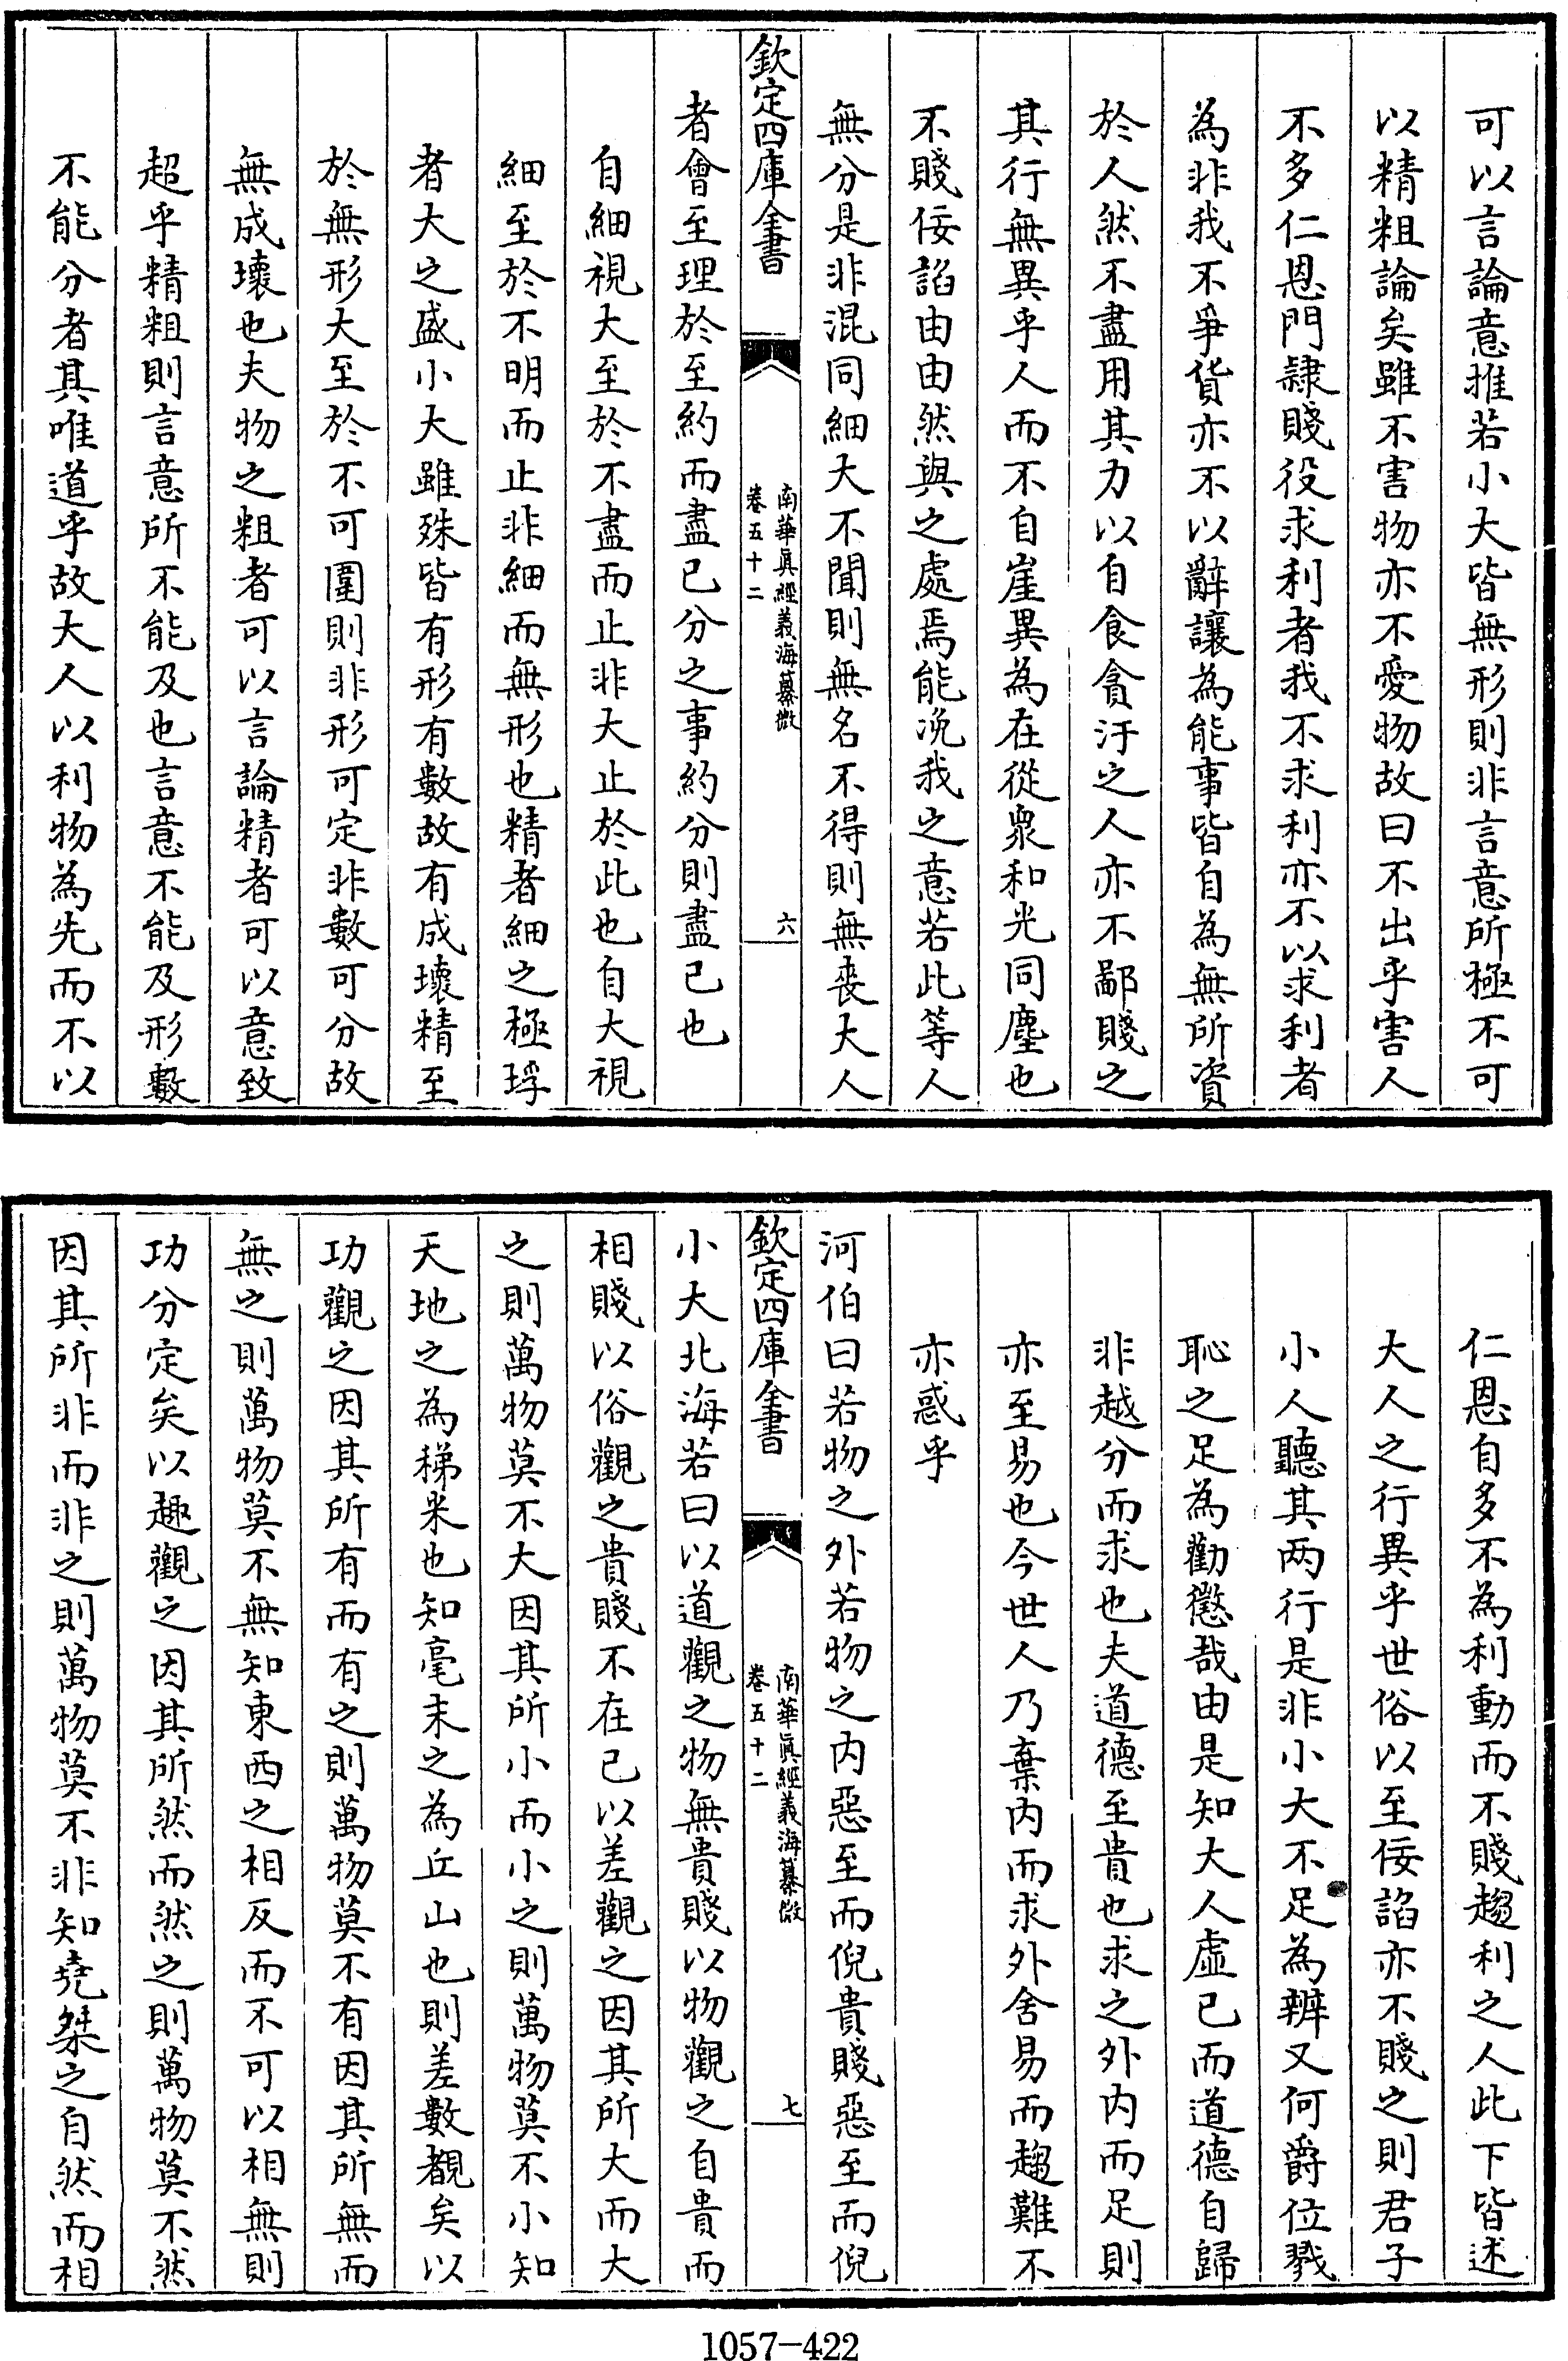 可以言論意推若小大皆無形則非言意所極不可
以精粗論矣雖不害物亦不愛物故曰不出乎害人
不多仁恩門隷賤役求利者我不求利亦不以求利者
為非我不爭貨亦不以辭讓為能事皆自為無所資
於人然不盡用其力以自食貪汙之人亦不鄙賤之
其行無異乎人而不自崖異為在從衆和光同塵也
不賤佞諂由由然與之處焉能浼我之意若此等人
無分是非混同細大不聞則無名不得則無喪大人
欽定四庫全書
南華眞經義海纂微
卷五十二
六
者會至理於至約而盡已分之事約分則盡已也
自細視大至於不盡而止非大止於此也自大視
細至於不明而止非細而無形也精者細之極垺
者大之盛小大雖殊皆有形有數故有成壞精至
於無形大至於不可圍則非形可定非數可分故
無成壞也夫物之粗者可以言論精者可以意致
超乎精粗則言意所不能及也言意不能及形數
不能分者其唯道乎故大人以利物為先而不以
仁恩自多不為利動而不賤趨利之人此下皆述
大人之行異乎世俗以至佞諂亦不賤之則君子
小人聽其两行是非小大不足為辨又何爵位戮
恥之足為勸懲哉由是知大人虛已而道德自歸
非越分而求也夫道德至貴也求之外内而足則
亦至易也今世人乃棄内而求外舍易而趨難不
亦惑乎
河伯曰若物之外若物之内惡至而倪貴賤惡至而倪
欽定四庫全書
南華眞經義海纂微
卷五十二
七
小大北海若曰以道觀之物無貴賤以物觀之自貴而
相賤以俗觀之貴賤不在已以差觀之因其所大而大
之則萬物莫不大因其所小而小之則萬物莫不小知
天地之為稊米也知毫末之為丘山也則差數覩矣以
功觀之因其所有而有之則萬物莫不有因其所無而
無之則萬物莫不無知東西之相反而不可以相無則
功分定矣以趣觀之因其所然而然之則萬物莫不然
因其所非而非之則萬物莫不非知堯桀之自然而相
1057-422